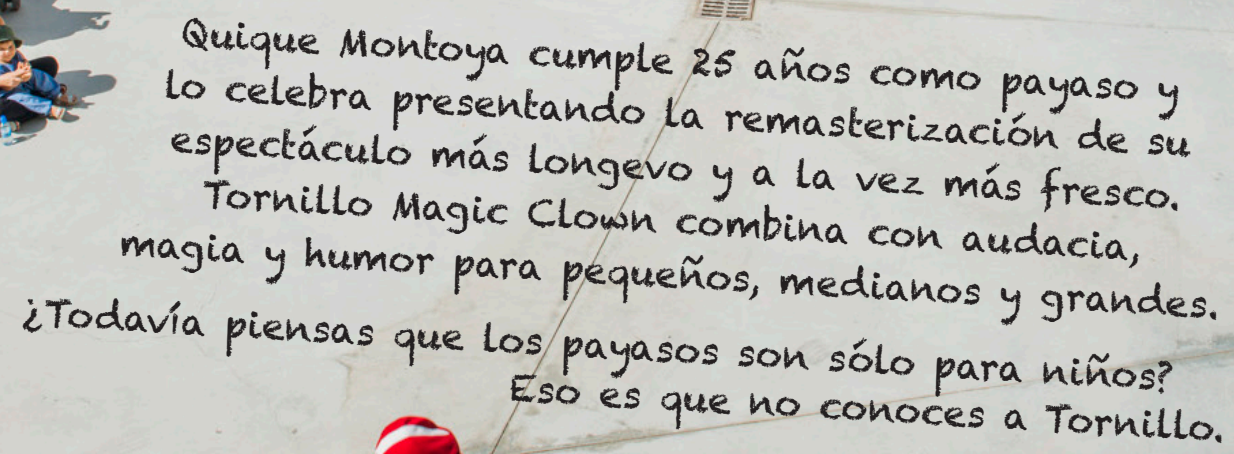 Quique Montoya cumple 25 años como payaso y
lo celebra presentando la remasterización de su
espectáculo más longevo y a la vez más fresco.
Tornillo Magic Clown combina con audacia,
magia y humor para pequeños, medianos y grandes.
¿Todavía piensas que los payasos son sólo para niños?
Eso es que no conoces a Tornillo.